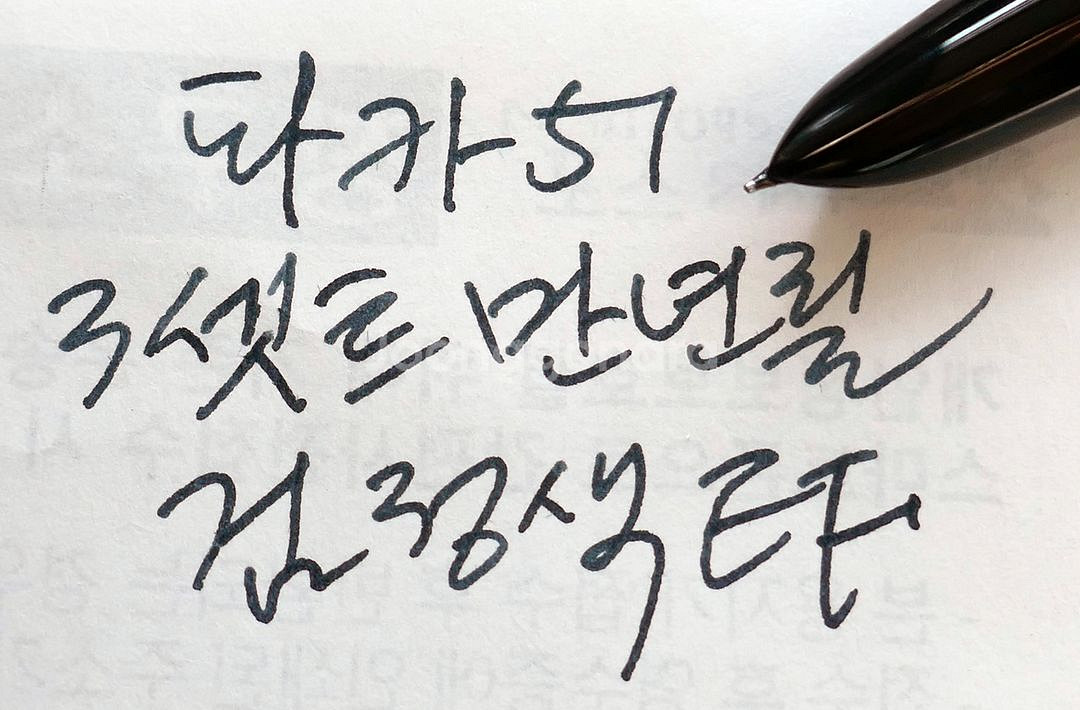 파카 51
구셋트 만년필
검정색 EF